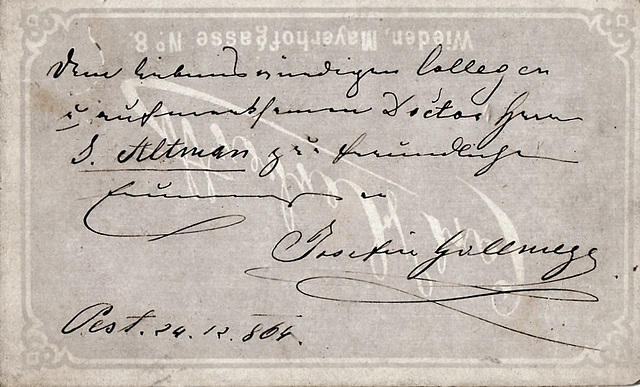 Wieden, Mayerhofgasse № 8.
Dem liebenswürdigen Collegen
u. aufmerksamen Doctor Herrn
S. Altman zur freundlichen
Erinnerung an
Josefine Gallmeyer
Pest. 24. 12. 864.